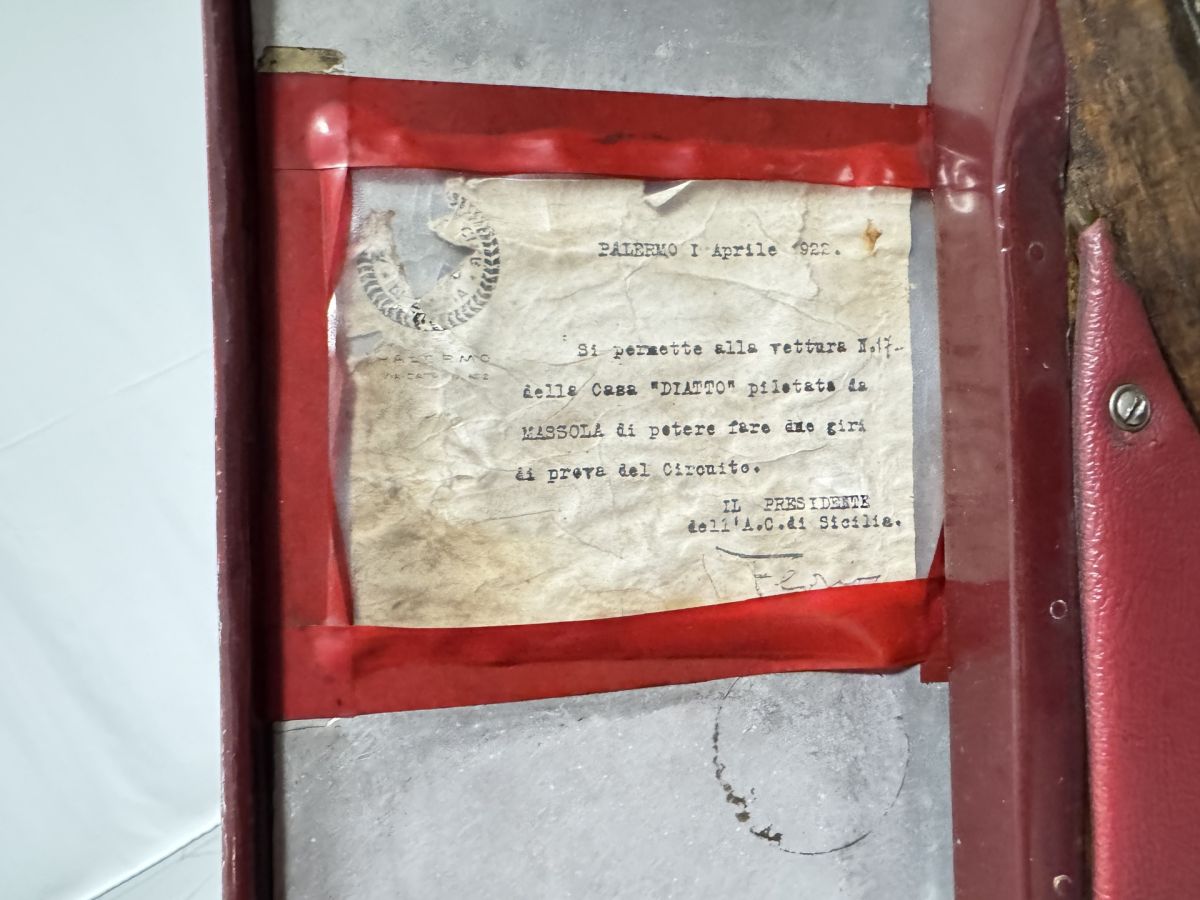 PALERMO I Aprile 922.
PALERMO
Si permette alla vettura N.17
della Casa "DIATTO" pilotata da
MASSOLA di potere fare due giri
di prova del Circuito.
IL PRESIDENTE
dell'A.C.di Sicilia.